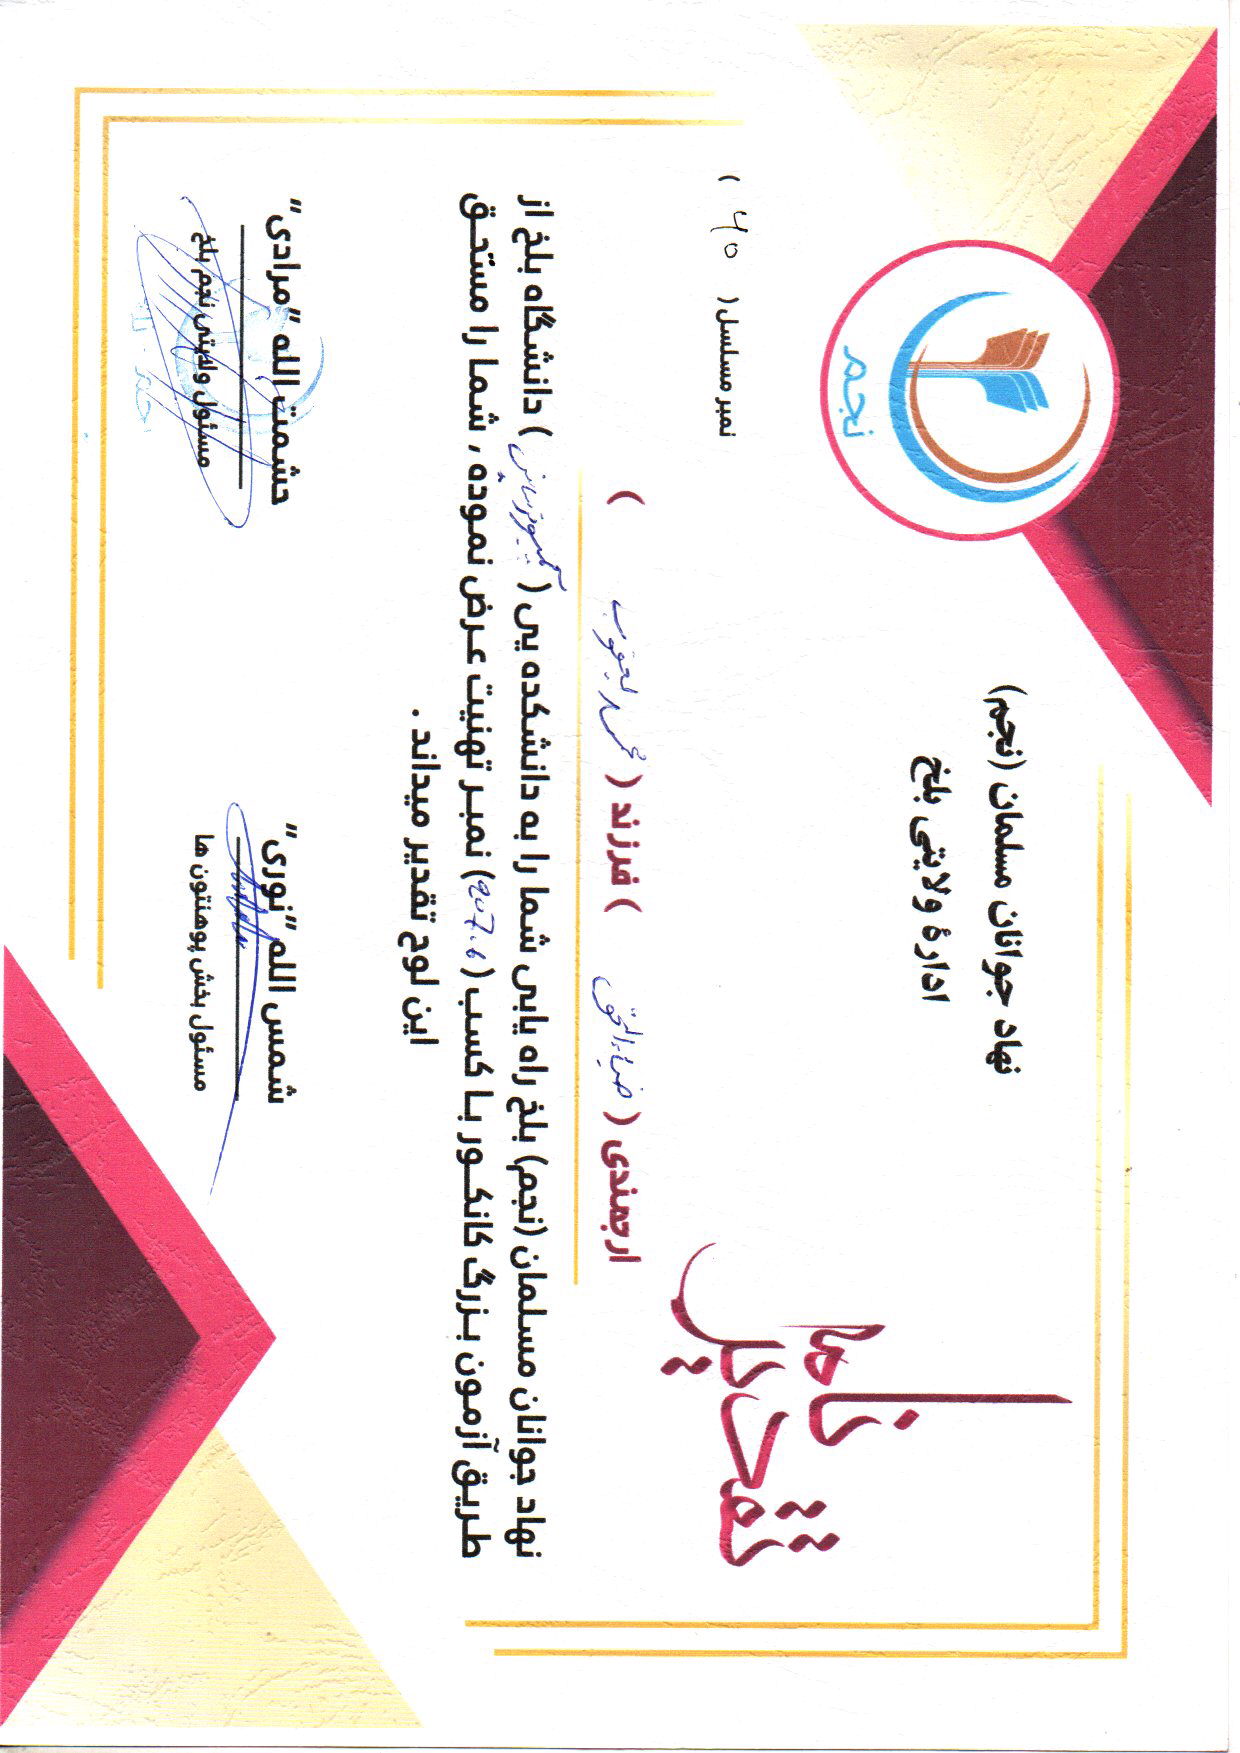 نهاد جوانان مسلمان (نجم)
ادارهٔ ولایتی بلخ
نجم
نمبر مسلسل( ۴۵ )
تقدیرنامه
ارجمندی ( ضیاءالحق ) فرزند ( محمد یعقوب )
نهاد جوانان مسلمان (نجم) بلخ راه یابی شما را به دانشکده یی ( کمپیوترساینس ) دانشگاه بلخ از
طریق آزمون بزرگ کانکور با کسب (207.6) نمبر تهنیت عرض نموده , شما را مستحق
این لوح تقدیر میداند .
شمس الله "نوری"
مسئول بخش پوهنتون ها
حشمت الله "مرادی"
مسئول ولایتی نجم بلخ